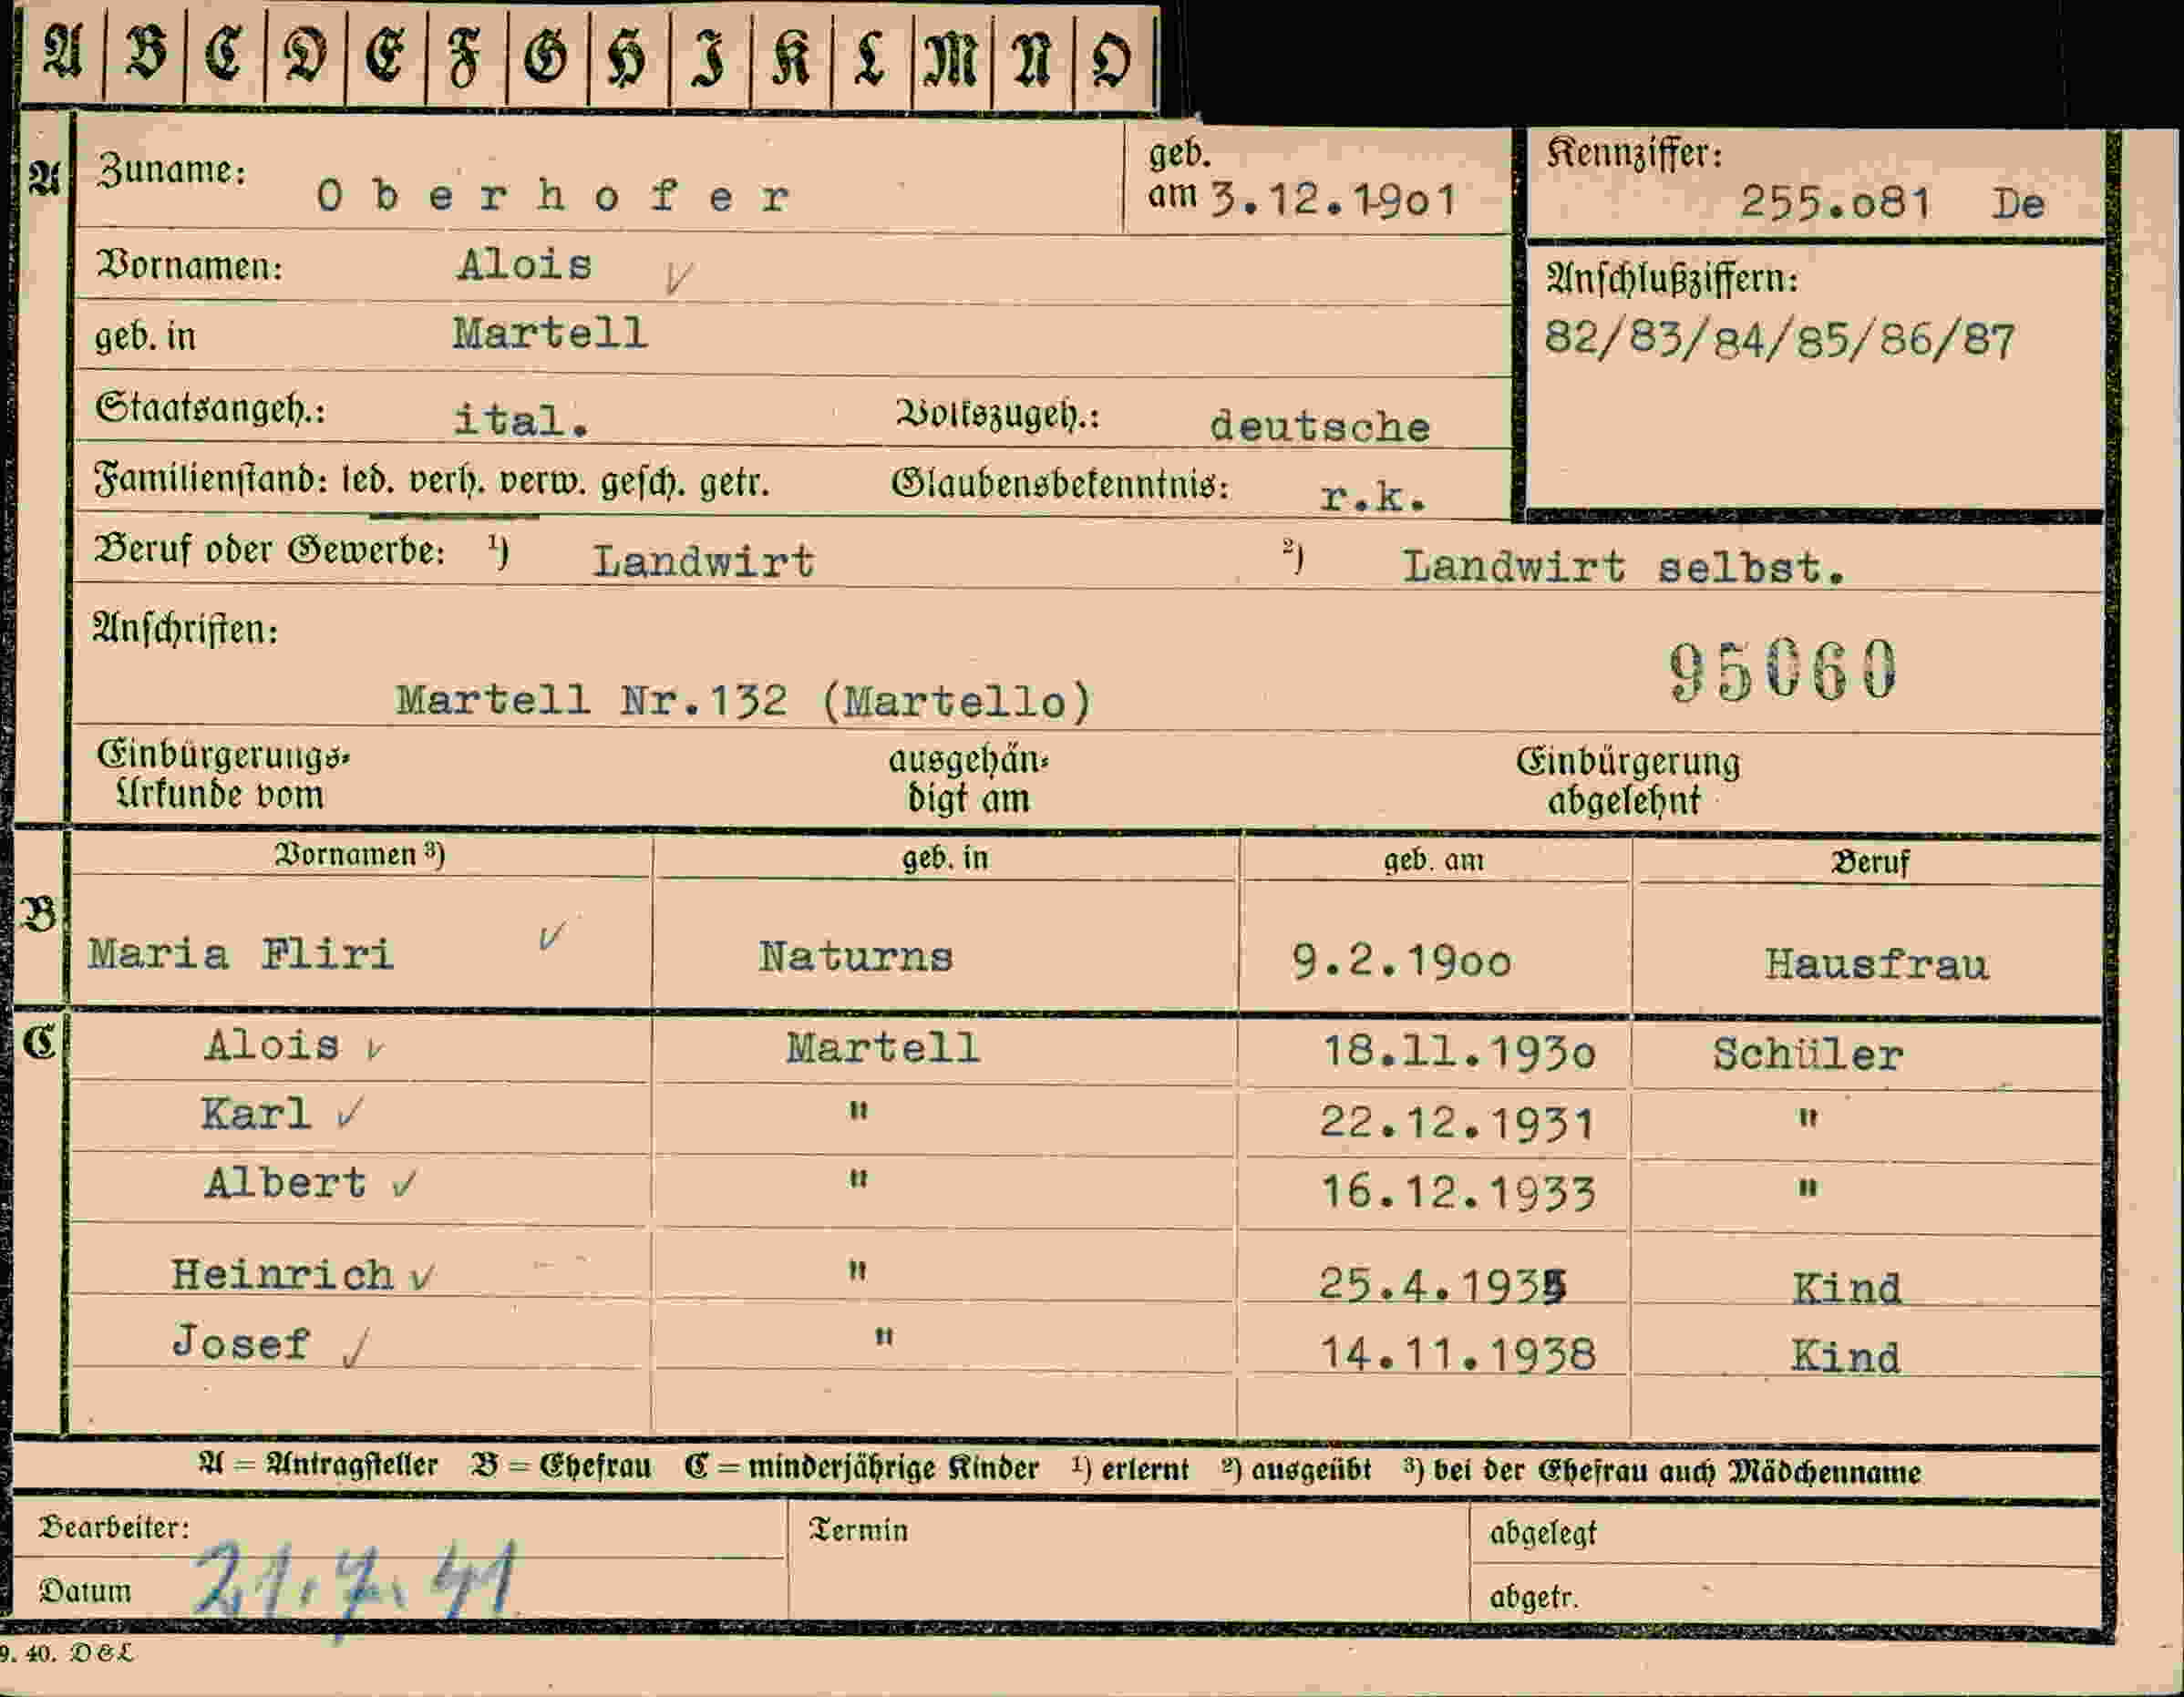 A B C D E F G H I K L M N O
A Zuname: Oberhofer geb. am 3.12.1901 Kennziffer: 255.081 De
Vornamen: Alois Anschlußziffern:
geb. in Martell 82/83/84/85/86/87
Staatsangeh.: ital. Volkszugeh.: deutsche
Familienstand: led. verh. verw. gesch. getr. Glaubensbekenntnis: r.k.
Beruf oder Gewerbe: 1) Landwirt 2) Landwirt selbst.
Anschriften:
95060
Martell Nr.132 (Martello)
Einbürgerungs- ausgehän- Einbürgerung
Urkunde vom digt am abgelehnt
Vornamen 3) geb. in geb. am Beruf
B Maria Fliri Naturns 9.2.1900 Hausfrau
C Alois Martell 18.11.1930 Schüler
Karl " 22.12.1931 "
Albert " 16.12.1933 "
Heinrich " 25.4.1935 Kind
Josef " 14.11.1938 Kind
A = Antragsteller B = Ehefrau C = minderjährige Kinder 1) erlernt 2) ausgeübt 3) bei der Ehefrau auch Mädchenname
Bearbeiter: Termin abgelegt
Datum 21.7.41 abgetr.
9. 40. D&L